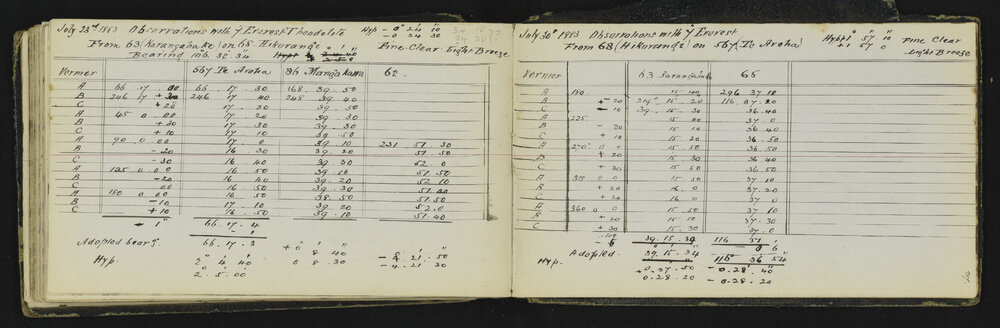 July 23rd 1883 Observations with 7" Everest Theodolite Hyp
From 63 (Karangahake) on 68 Hikurangi Fine Clear Light Breeze
Bearing 106. 32. 34
Vernier 56 Te Aroha 86 Mangakawa 62
A 66 17 00 66 . 17 . 30 168. 39. 50
B 246 17 + 246 . 17 . 40 248 39 40
C + 20 17 . 20 39. 50
A 45 0 00 17 . 20 39. 30
B + 30 17 . 30 39. 30
C + 10 17 . 10 39. 50
A 90 0 00 17 . 0 39. 10 231 51 30
B - 20 16 . 30 39. 20 51 50
C - 30 16 . 40 39 30 52 0
A 135 0 00 16 . 50 39. 10 51. 50
B - 20 16 40 39. 20 52 10
C 00 16 50 39. 30 51 40
A 180 0 00 16 50 38. 50 51. 50
B - 10 17 . 10 39 20 52. 0
C + 10 16 . 50 39. 10 51. 40
66 . 17 . 4
Adopted bearg. 66. 17. 3
8 40
Hyp. 2 4 40 0 8. 30 - 8. 21. 50
2. 5. 00 - 4. 21. 30
July 30th 1883 Observations with 7" Everest
From 68 (Hikurangi) on 56 (Te Aroha) Fine Clear
Light Breeze
Vernier 63 Karangahake 65
A 180 15 40 296 37. 10
B - 20 219 15 . 20 116 37. 20
C - 10 39 . 15 . 30 36. 40
A 225 15 40 37 0
B - 20 15 10 36 40
C + 10 15 20 36 50
A 270 0 0 15 50 36. 50
B + 30 15 30 36 40
C + 30 15 50 36. 50
A 315 0 0 15 . 50 37. 10
B + 20 16 0 37. 20
C + 20 16 0 37. 0
A 360 0 0 15 . 50 37 10
B + 20 15 . 50 37 . 30
C + 30 15 . 30 37 . 0
39. 15. 39 116 37 1
Adopted. 39. 15. 34 116 36 54
Hyp. + 0. 27 . 50 - 0. 28. 40
- 0. 28 . 20 - 0. 28 . 20